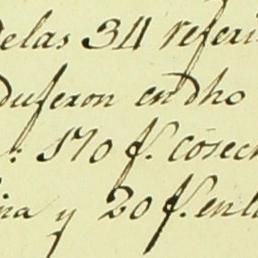 delas 34 referi
dujeron en dho
: 170 f. cosech
ina y 20 f. en la